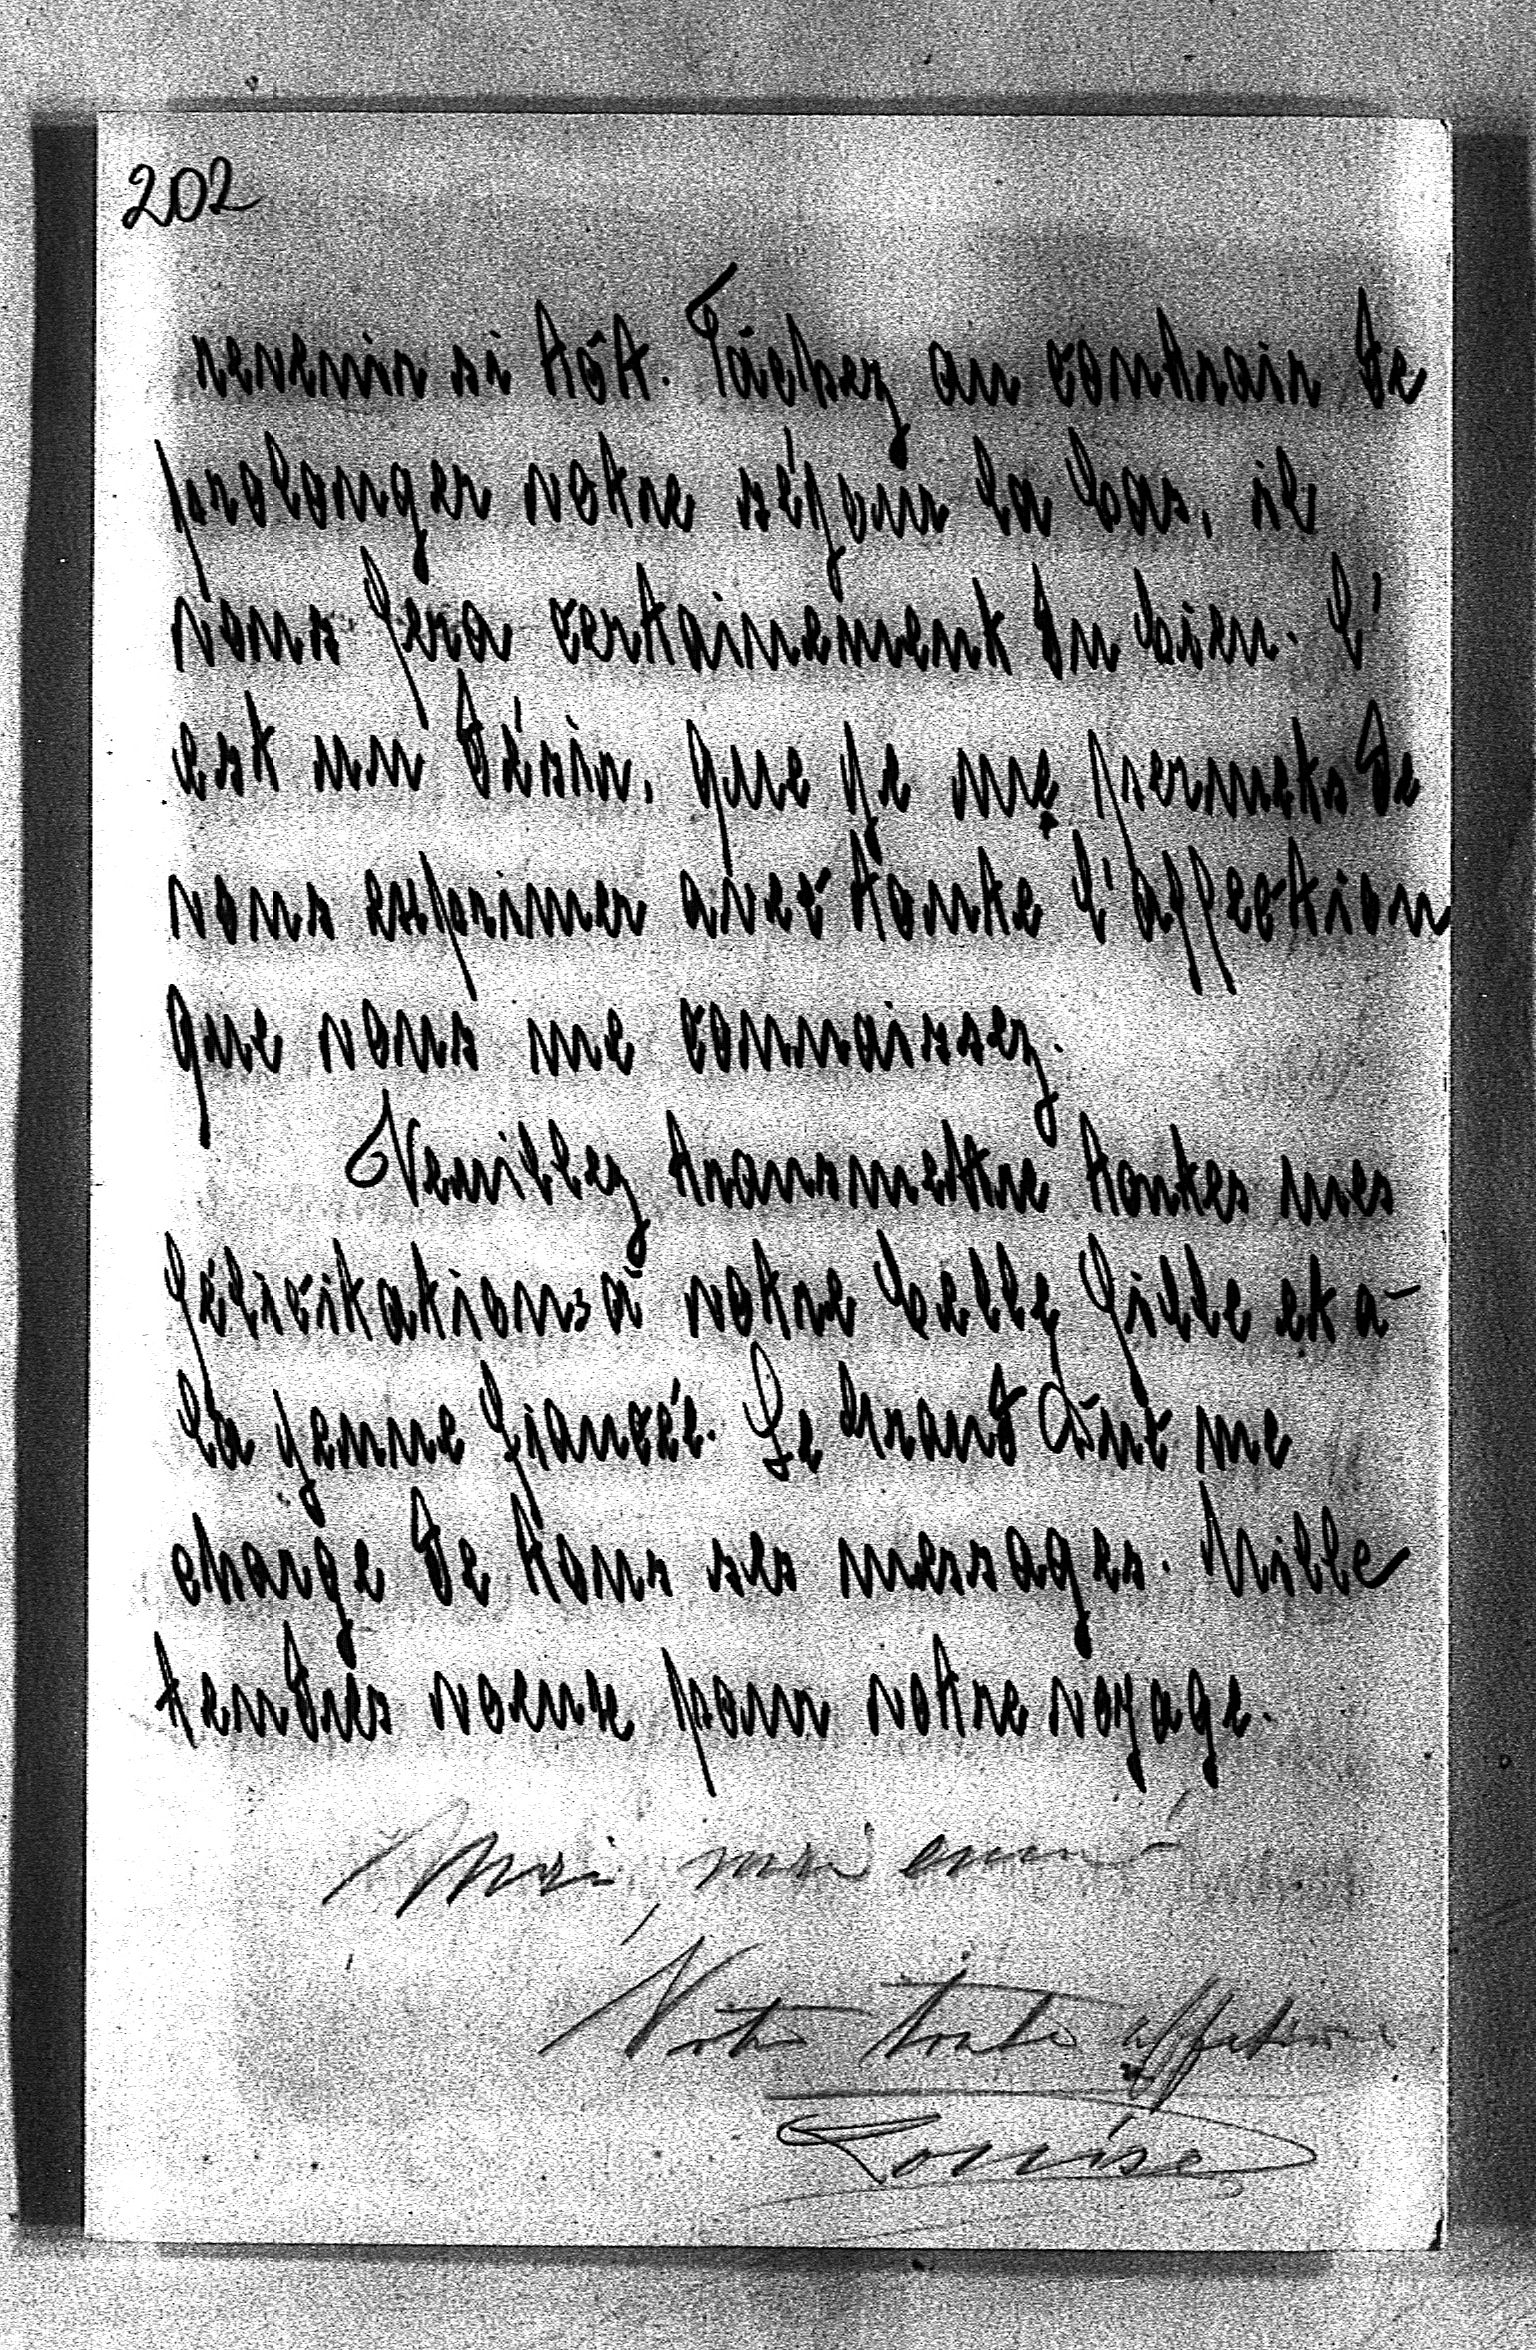 202
revenir si tôt. Tâchez au contrair de
prolonger votre séjour la bas, il
vous fera certainement du bien. C'
est un désir, que je me permets de
vous exprimer avec toute l'affection
que vous me connaissez.
Veuillez transmettre toutes mes
félicitations à votre belle fille et à
la jeune fiancée. Le Grand Duc me
charge de tous ses messages. Mille
tendres voeux pour votre voyage.
Votre toute affectionée
Louise